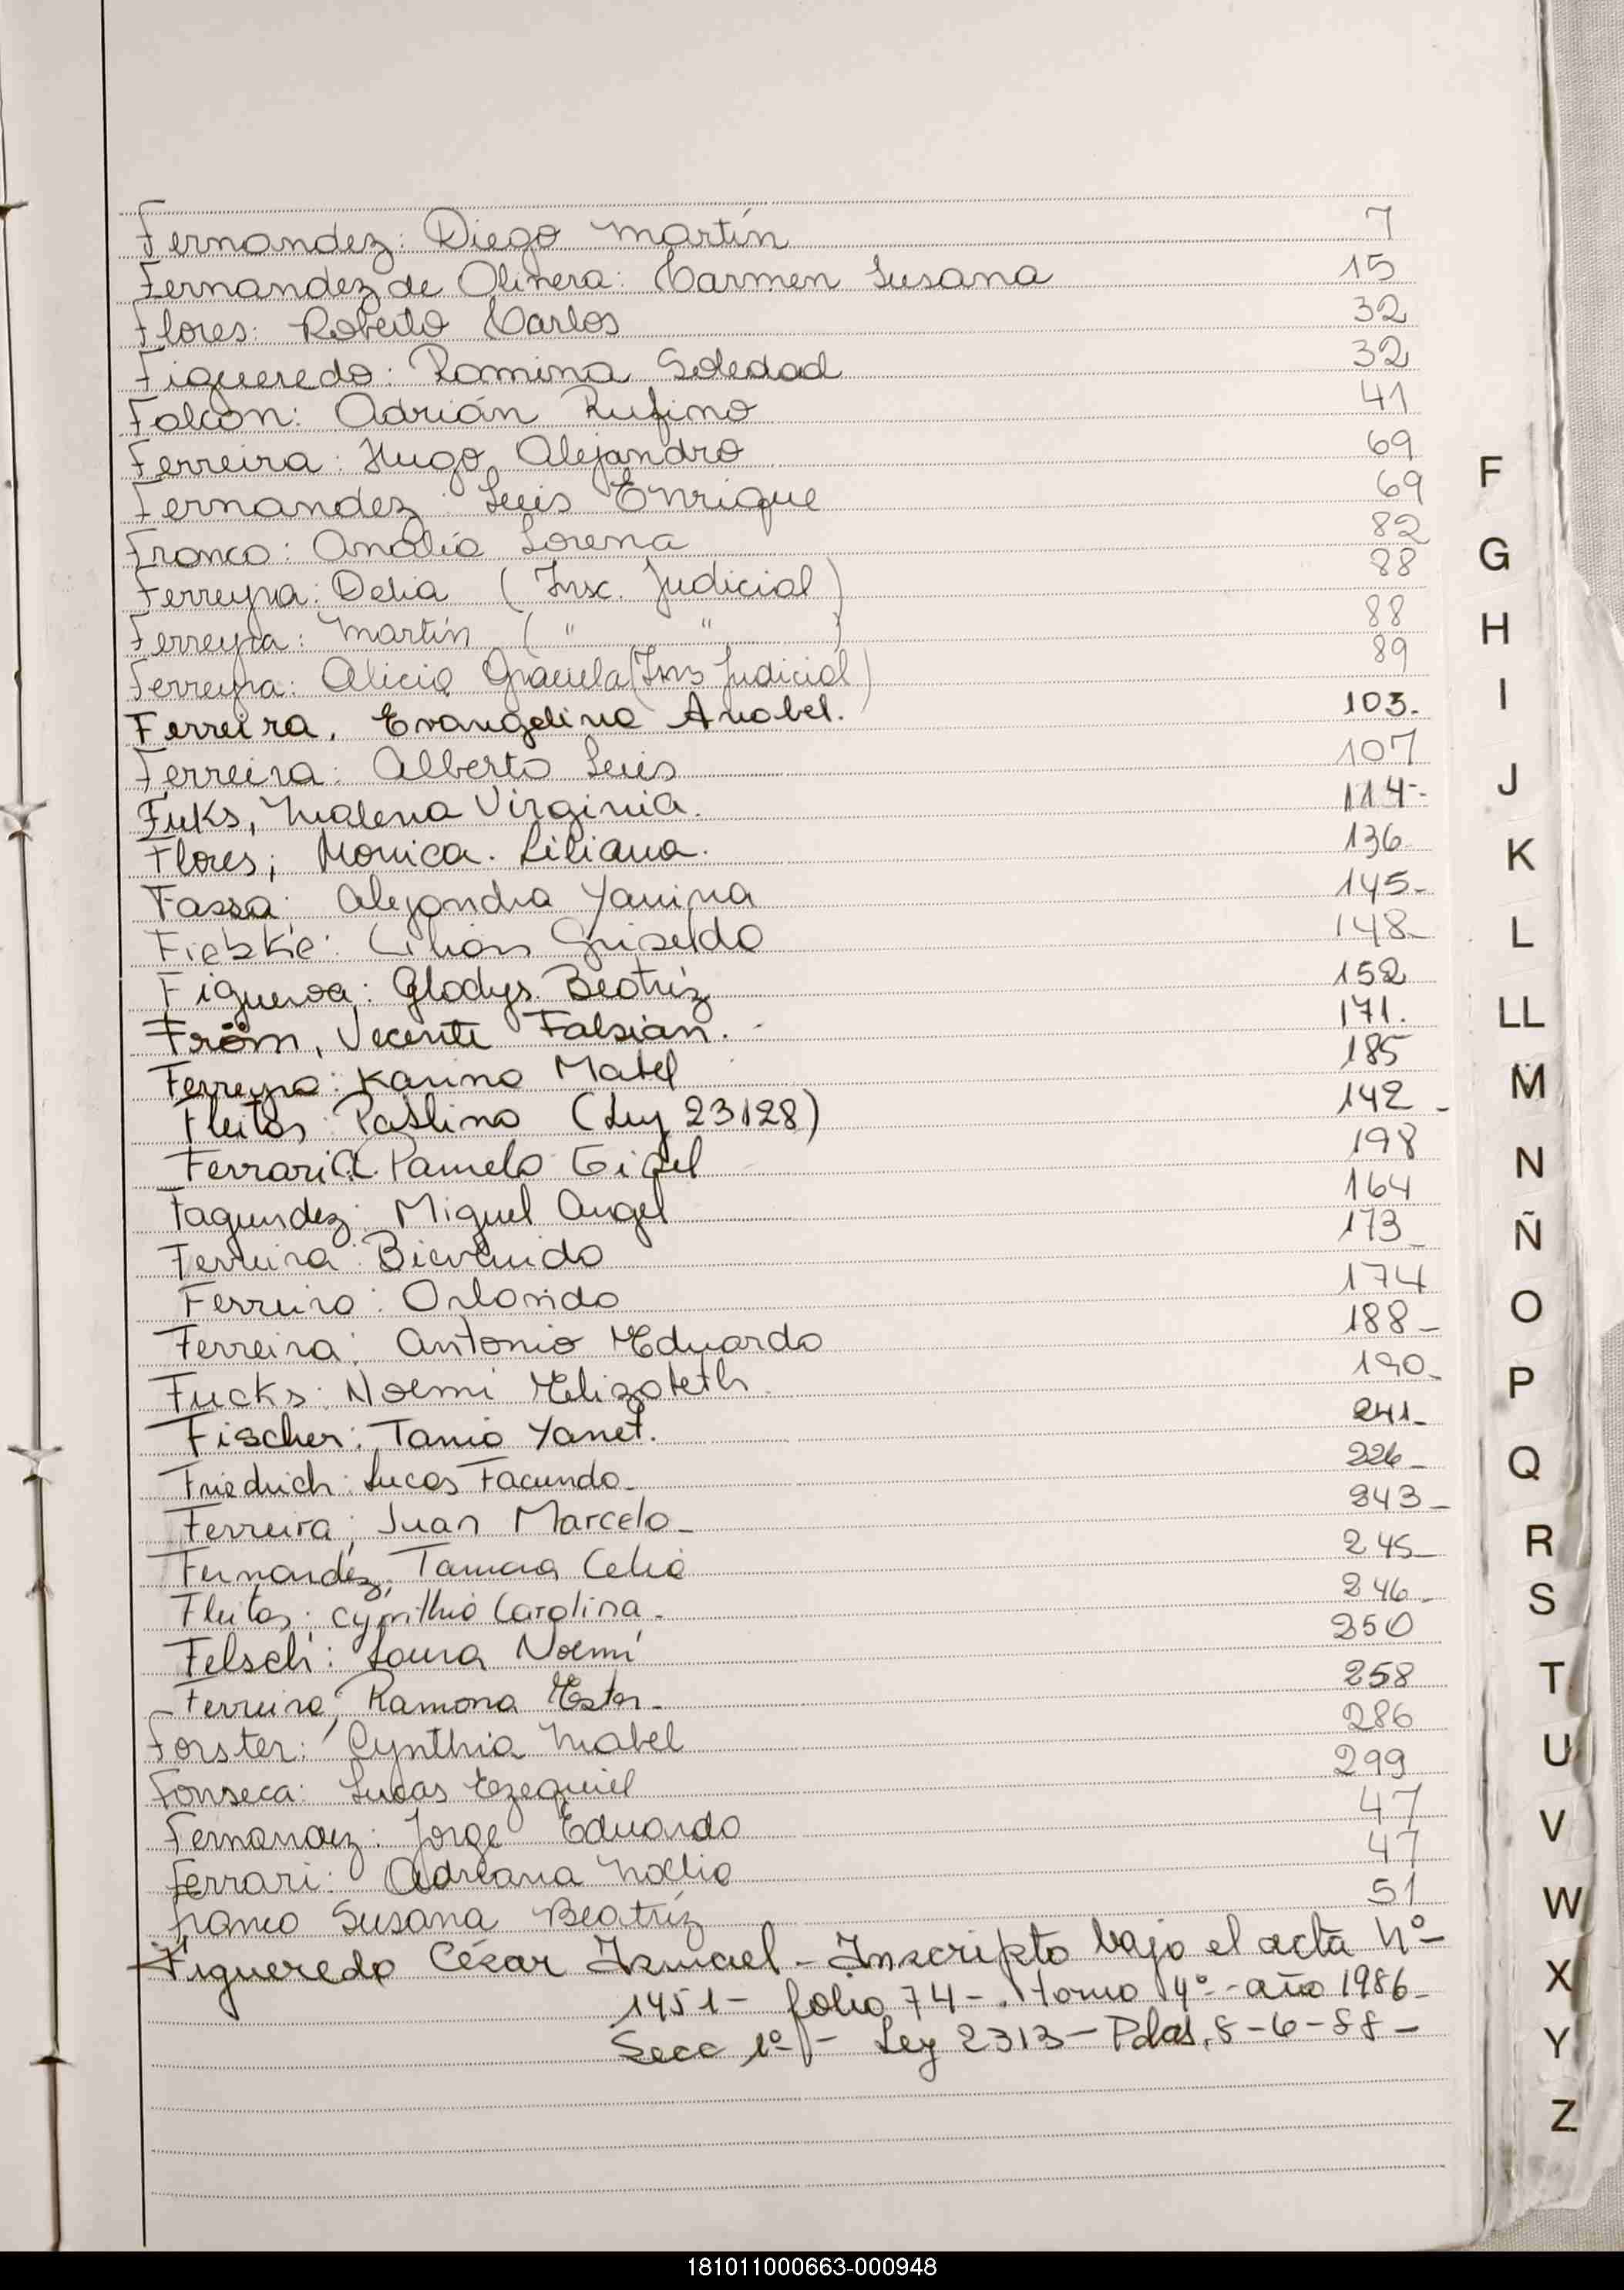 Fernandez: Diego Martín 7
Fernandez de Olivera: Carmen Susana 15
Flores: Roberto Carlos 32
Figueredo: Romina Soledad 32
Falcon: Adrián Rufino 41
Ferreira: Hugo Alejandro 69
Fernandez: Luis Enrique 69
Franco: Analía Lorena 82
Ferreyra: Delia (Insc. Judicial) 88
Ferreyra: Martín ( " " ) 88
Ferreyra: Alicia Graciela (Ins Judicial) 89
Ferreira, Evangelina Anabel. 103.
Ferreira: Alberto Luis 107
Fuks, Malena Virginia. 114-
Flores; Monica. Liliana. 136
Fassa: Alejandra Yanina 145-
Fiebke: Lilian Griselda 148-
Figueroa: Gladys Beatriz 152
Fröm, Vecente Fabian. 171.
Ferreyra: Karina Mabel 185
Fleitas: Paslina (Ley 23128) 142-
Ferrari Pamela Gisel 198
Fagundez: Miguel Angel 164
Ferreira: Bienvenido 173-
Ferreira: Orlando 174
Ferreira: Antonio Eduardo 188-
Fucks: Noemi Elizabeth 190-
Fischer: Tania Yanet. 241-
Friedrich: Lucas Facundo- 226-
Ferreira; Juan Marcelo- 243-
Fernandez, Tamara Celia 245-
Fleitas: Cynthia Carolina. 246-
Felsch: Laura Noemí 250
Ferreira, Ramona Ester- 258
Forster: Cynthia Mabel 286
Fonseca: Lucas Ezequiel 299
Fernandez: Jorge Eduardo 47
Ferrari: Adreana Noelia 47
Franco Susana Beatríz 51
Figueredo César Ismael - Inscripto bajo el acta Nº-
1451- folio 74-. tomo 4º- año 1986-
Secc 1º- Ley 2313- Pdas. 8-6-88-
F
G
H
I
J
K
L
LL
M
N
Ñ
O
P
Q
R
S
T
U
V
W
X
Y
Z
181011000663-000948